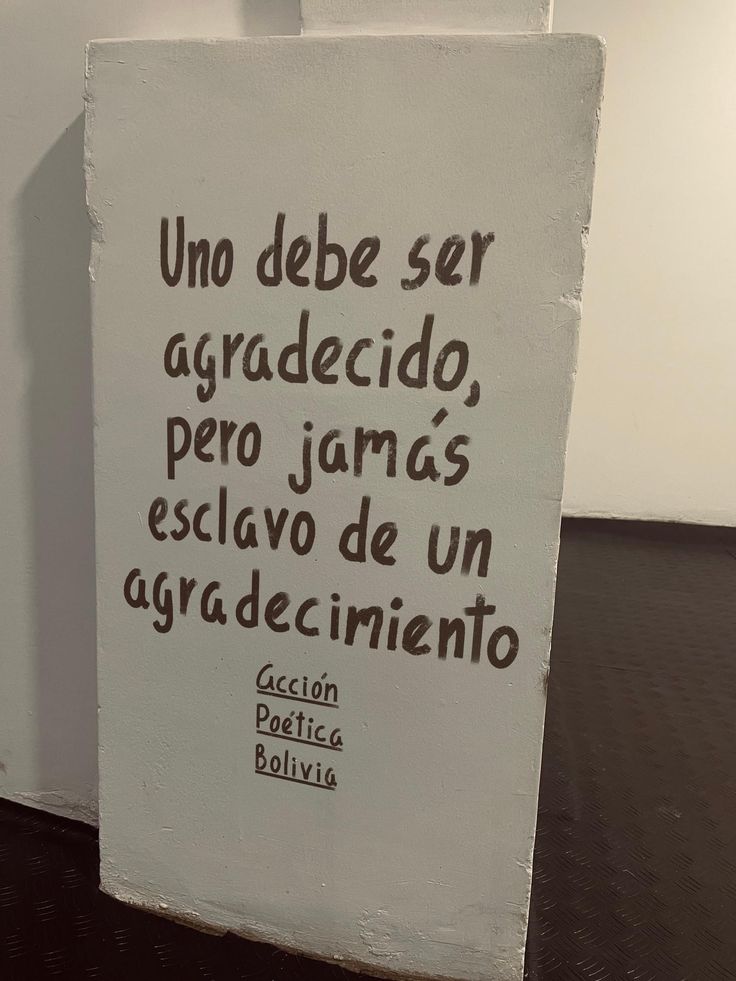 Uno debe ser
agradecido,
pero jamás
esclavo de un
agradecimiento
Acción
Poética
Bolivia